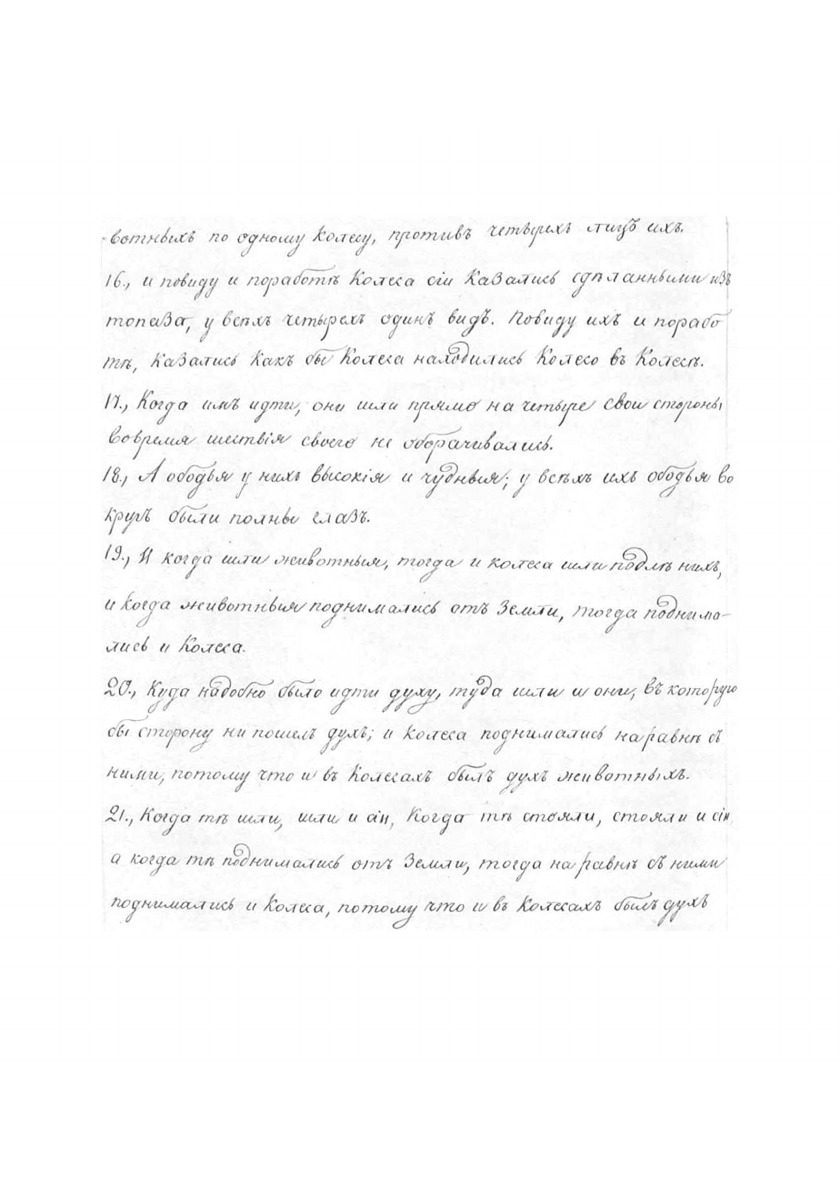 вотныхъ по одному колесу, противъ четырехъ лицъ ихъ.
16., и повиду и поработѣ Колеса сіи Казались сдѣланными изъ
топаза, у всѣхъ четырехъ одинъ видъ. Повиду ихъ и порабо
тѣ, Казались Какъ бы Колеса находились Колесо въ Колесѣ.
17., Когда имъ идти, они шли прямо на четыре свои стороны
вовремя шествія своего не оборачивались.
18., А ободья у нихъ высокія и чудныя; у всѣхъ ихъ ободья во
кругъ были полны глазъ.
19., И когда шли животныя, тогда и колеса шли подлѣ нихъ,
и когда животныя поднимались отъ Земли, тогда поднима-
лись и Колеса.
20., Куда надобно было идти духу, туда шли и они, въ которую
бы сторону ни пошелъ духъ; и колеса поднимались наравнѣ съ
ними, потому что и въ Колесахъ былъ духъ животныхъ.
21., Когда тѣ шли, шли и сіи, Когда тѣ стояли, стояли и сіи,
а когда тѣ поднимались отъ Земли, тогда наравнѣ съ ними
поднимались и Колеса, потому что и въ Колесахъ былъ духъ